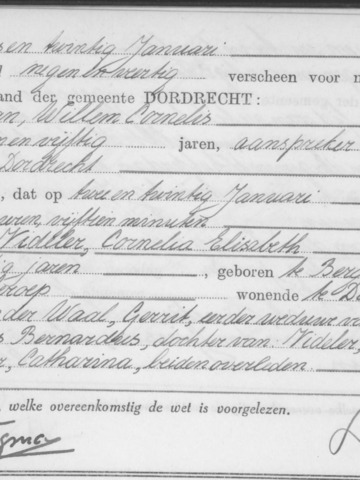 en twintig Januari
negen en veertig verscheen voor m
and der gemeente DORDRECHT:
n, Willem Cornelis
en vijftig jaren, aanspreker
Dordrecht
, dat op twee en twintig Januari
uren, vijftien minuten
Videler, Cornelia Elisabeth
ig jaren , geboren te Ber
eroep wonende te D
der Waal, Gerrit, eerder weduwe v
s Bernardus, dochter van: Videler,
, Catharina, beiden overleden.
welke overeenkomstig de wet is voorgelezen.